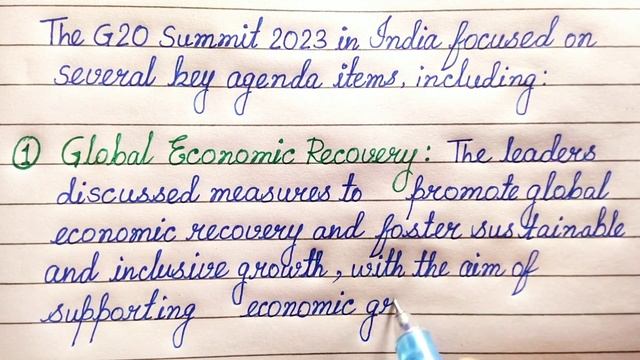 The G20 Summit 2023 in India focused on
several key agenda items, including:
① Global Economic Recovery: The leaders
discussed measures to promote global
economic recovery and foster sustainable
and inclusive growth, with the aim of
supporting economic gr